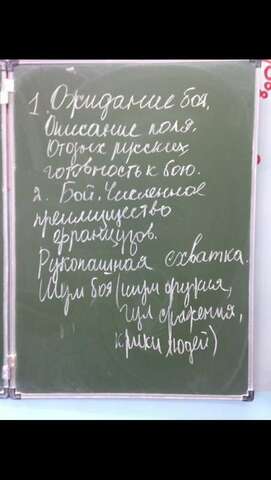 1. Ожидание боя.
Описание поля.
Отдых русских
готовность к бою.
2. Бой. Численное
преимущество
французов.
Рукопашная схватка.
Шум боя (шум оружия,
гул сражений,
крики людей)